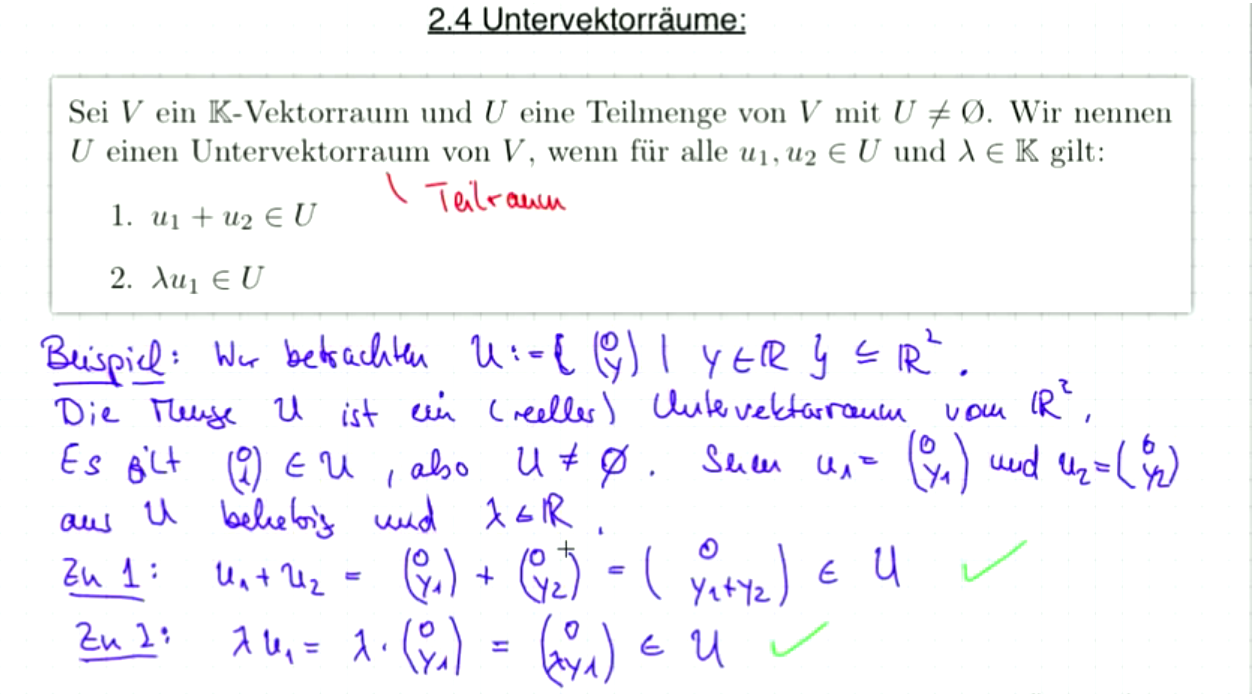 2.4 Untervektorräume:
Sei V ein 𝕂-Vektorraum und U eine Teilmenge von V mit U ≠ Ø. Wir nennen
U einen Untervektorraum von V, wenn für alle u₁, u₂ ∈ U und λ ∈ 𝕂 gilt:
Teilraum
1. u₁ + u₂ ∈ U
2. λu₁ ∈ U
Beispiel: Wir betrachten U := { (0 y) | y ∈ ℝ } ⊆ ℝ².
Die Menge U ist ein (reeller) Untervektorraum vom ℝ².
Es gilt (0 1) ∈ U, also U ≠ Ø. Seien u₁ = (0 y₁) und u₂ = (0 y₂)
aus U beliebig und λ ∈ ℝ.
Zu 1: u₁ + u₂ = (0 y₁) + (0 y₂) = (0 y₁+y₂) ∈ U ✓
Zu 2: λu₁ = λ · (0 y₁) = (0 λy₁) ∈ U ✓